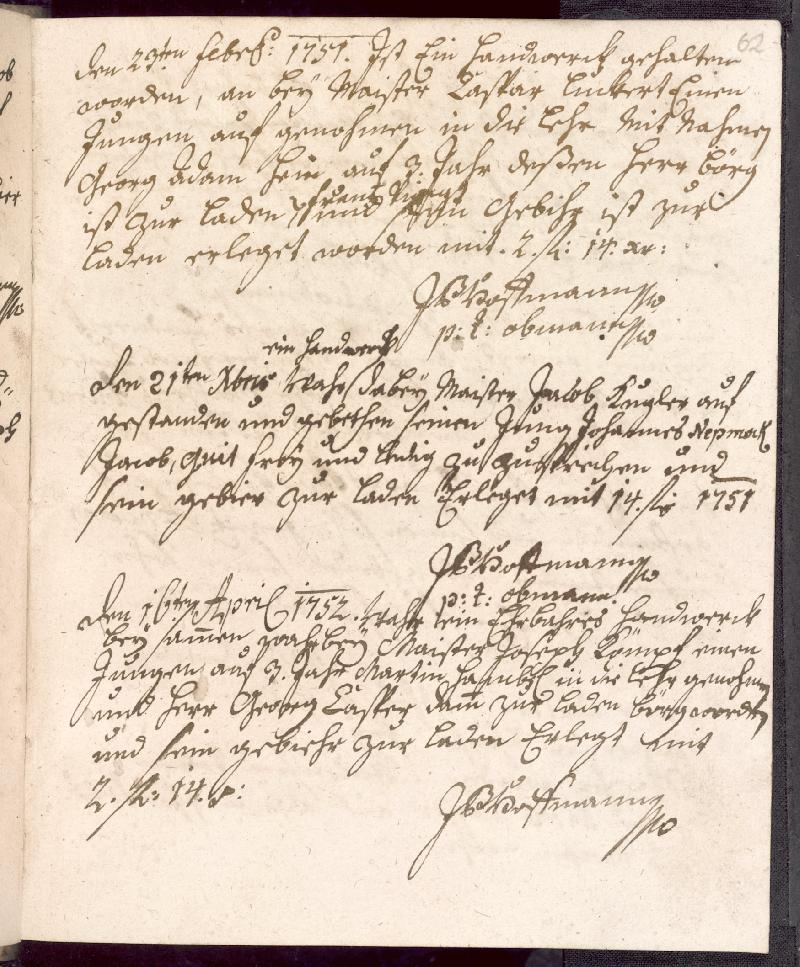 62
den 23ten febe: 1751. Ist Ein handwerck gehalten
worden, an bey Maister Caspar luckert Einen
Jungen auf genohmen in die lehr Mit Nahmen
Georg Adam hein auf 3. Jahr deßen herr börg
ist zur laden frantz und sein Gebihr ist zur
laden erleget worden mit. 2. fl: 14. xr:
JBHoffmann
p: t: obmann
ein handwerck
den 21ten Xbris wahr dabey Maister Jacob Kugler auf
gestanden und gebethen seinen Jung Johannes Nepmock
Jacob, quit freÿ und ledig zu zusprechen und
sein gebier zur laden Erleget mit 14. fl 1751
JBHoffmann
p: t: obmann
den 16ten April 1752. wahr ein Ehrbahres handwerck
beÿ samen wahrbeÿ Maister Joseph Kömpf einen
Jungen auf 3. Jahr Martin in die lehr genohmen
und herr Georg Casper dam zur laden börg worden
und sein gebiehr zur laden Erlegt mit
2. fl: 14. x:
JBHoffmann